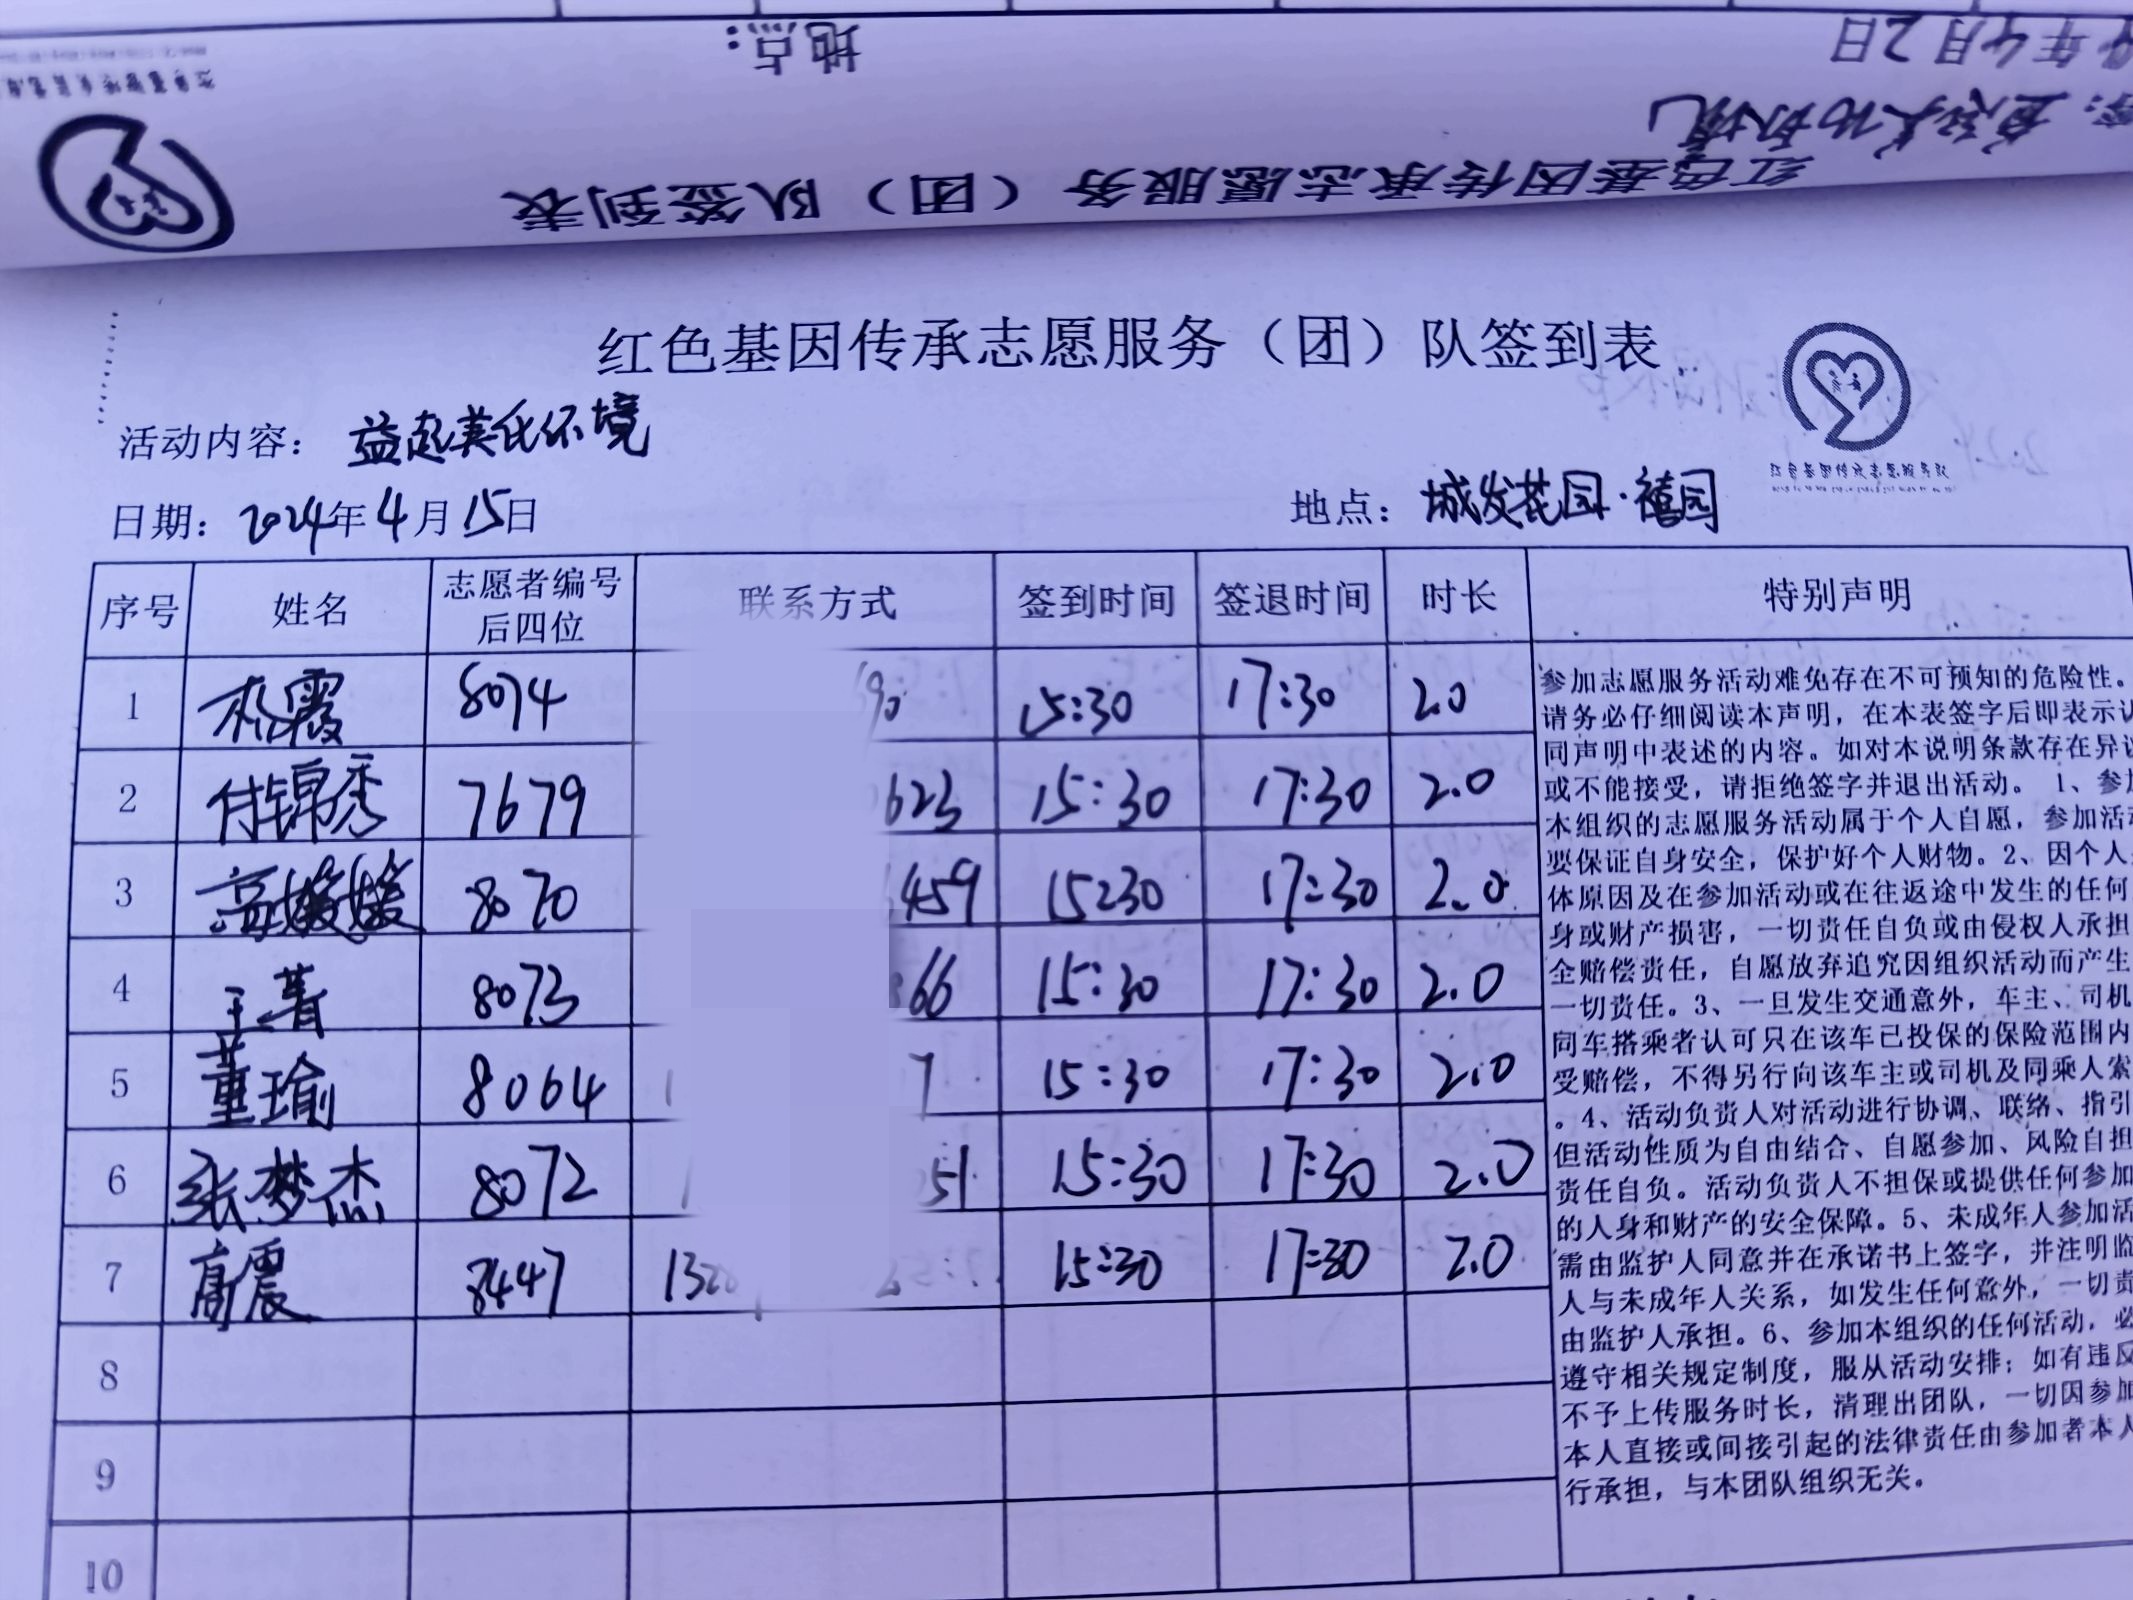 地点：
年4月2日
红色基因传承志愿服务（团）队签到表
红色基因传承志愿服务（团）队签到表
红色基因传承志愿服务队
活动内容： 益起美化环境
日期：2024年4月15日
地点： 城发花园·禧园
序号 姓名 志愿者编号后四位 联系方式 签到时间 签退时间 时长 特别声明
1 霞 8074 90 15:30 17:30 2.0
2 付锦秀 7679 623 15:30 17:30 2.0
3 高媛媛 8070 459 15:30 17:30 2.0
4 王菁 8073 66 15:30 17:30 2.0
5 董瑜 8064 1 7 15:30 17:30 2.0
6 张梦杰 8072 1 51 15:30 17:30 2.0
7 高震 8447 132 15:30 17:30 2.0
8
9
10
参加志愿服务活动难免存在不可预知的危险性。
请务必仔细阅读本声明，在本表签字后即表示认
同声明中表述的内容。如对本说明条款存在异议
或不能接受，请拒绝签字并退出活动。 1、参加
本组织的志愿服务活动属于个人自愿，参加活动
要保证自身安全，保护好个人财物。2、因个人
体原因及在参加活动或在往返途中发生的任何
身或财产损害，一切责任自负或由侵权人承担
全赔偿责任，自愿放弃追究因组织活动而产生
一切责任。3、一旦发生交通意外，车主、司机
同车搭乘者认可只在该车已投保的保险范围内
受赔偿，不得另行向该车主或司机及同乘人索
。4、活动负责人对活动进行协调、联络、指引
但活动性质为自由结合、自愿参加、风险自担
责任自负。活动负责人不担保或提供任何参加
的人身和财产的安全保障。5、未成年人参加活
需由监护人同意并在承诺书上签字，并注明监
人与未成年人关系，如发生任何意外，一切责
由监护人承担。6、参加本组织的任何活动，必
遵守相关规定制度，服从活动安排；如有违反
不予上传服务时长，清理出团队，一切因参加
本人直接或间接引起的法律责任由参加者本人
行承担，与本团队组织无关。